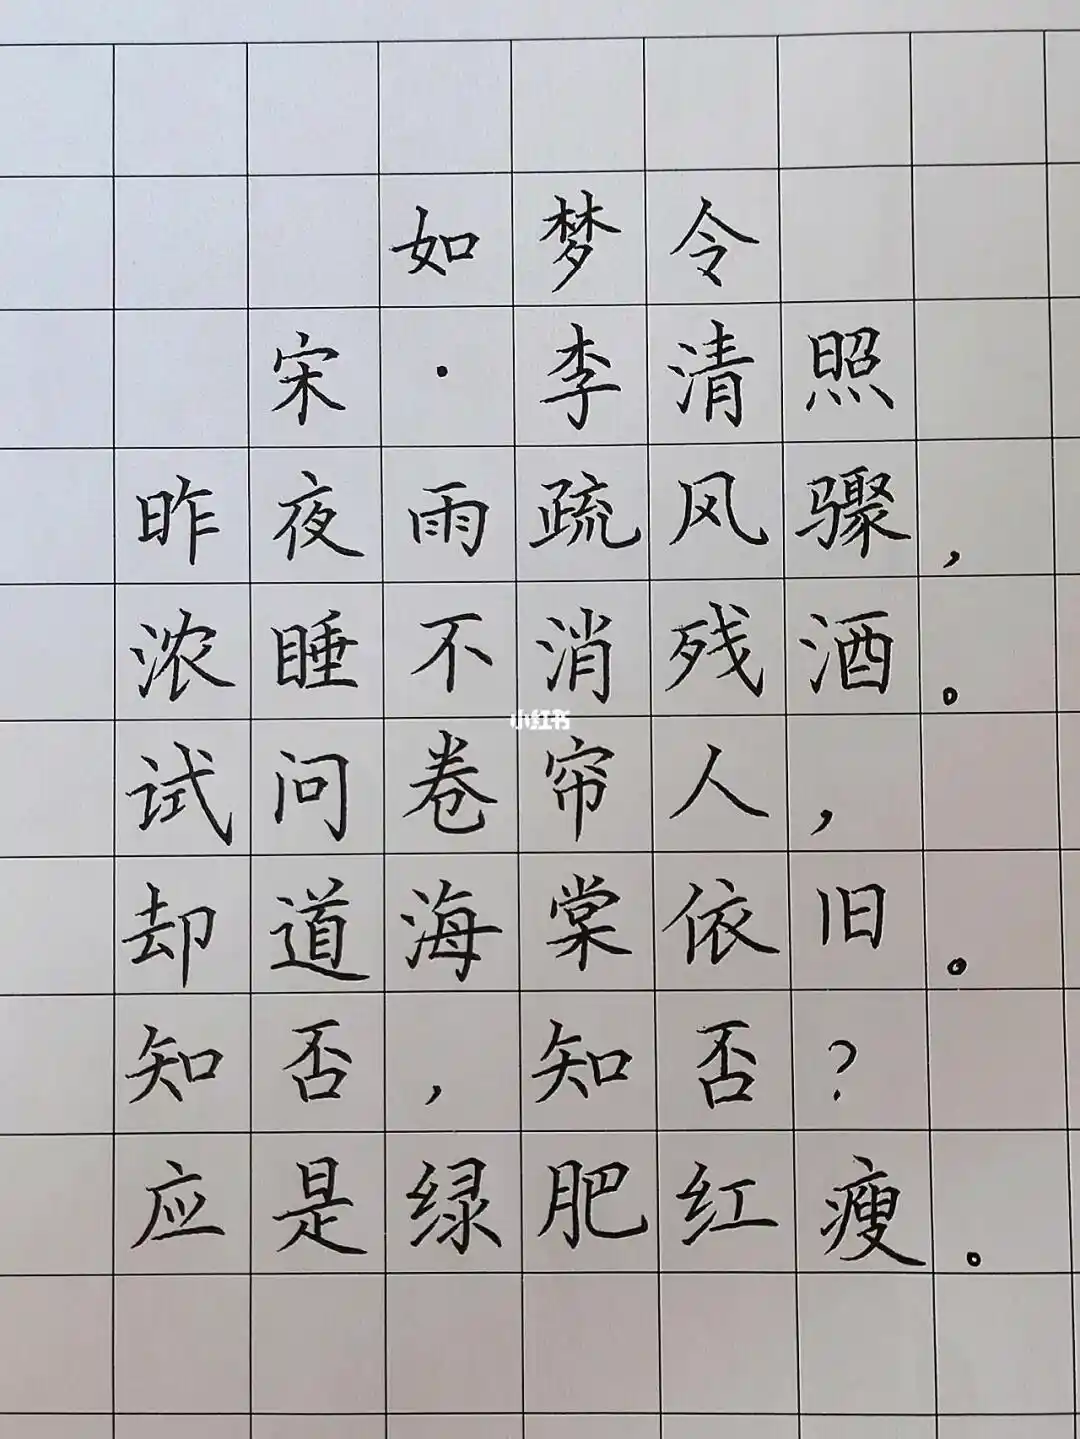 如梦令
宋·李清照
昨夜雨疏风骤，
浓睡不消残酒。
小红书
试问卷帘人，
却道海棠依旧。
知否，知否？
应是绿肥红瘦。